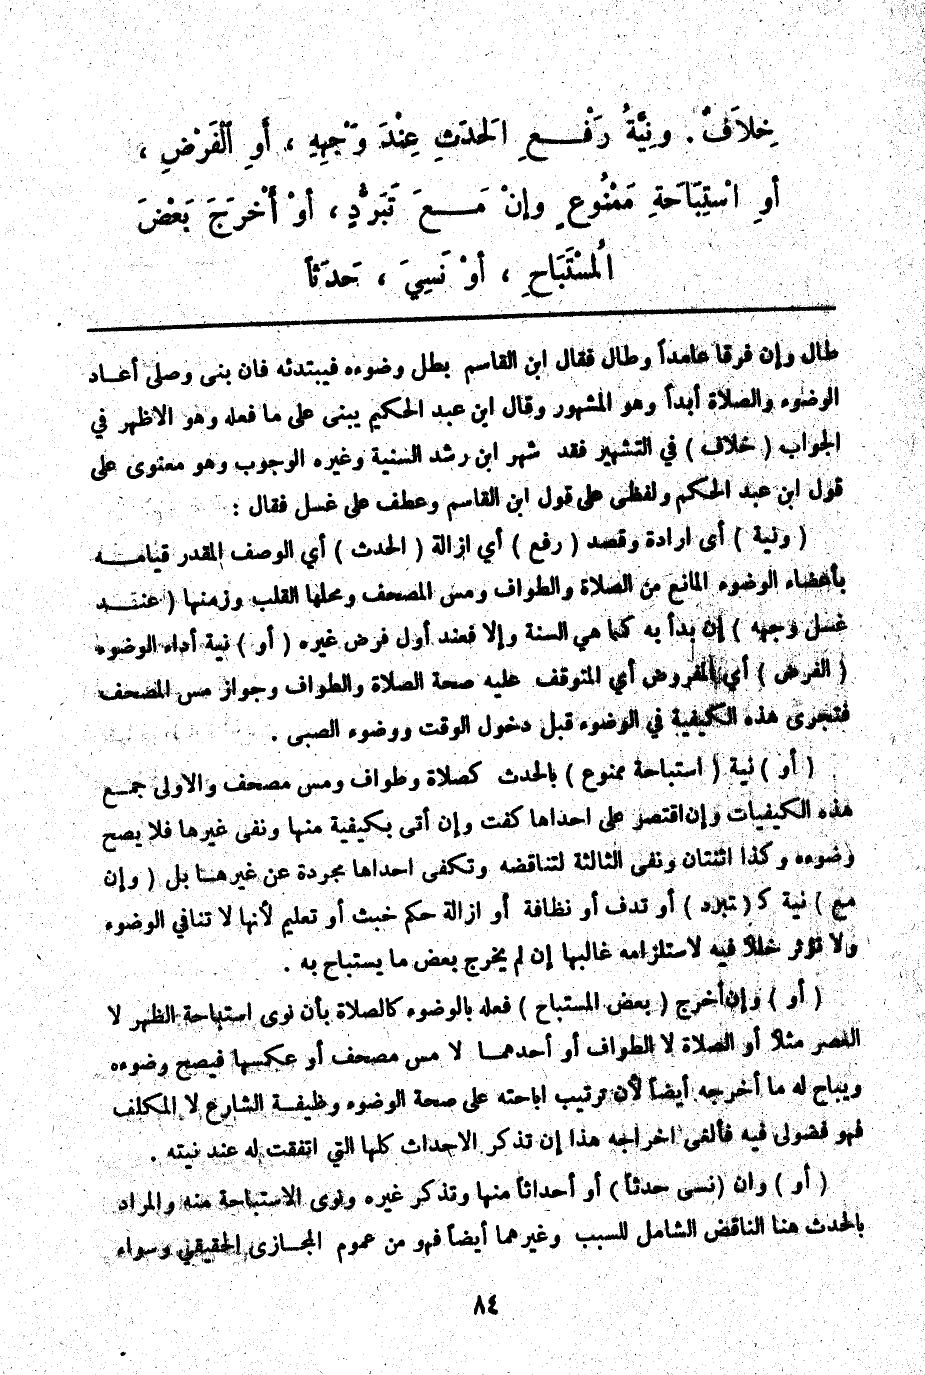 خِلاَفٌ. ونِيَّةُ رَفْعِ الحَدَثِ عِنْدَ وَجْهِهِ ، أَوِ الْفَرْضِ ،
أوِ اسْتِبَاحَةِ مَمْنُوعٍ وإنْ مَعَ تَبَرُّدٍ ، أوْ أَخْرَجَ بَعْضَ
الْمُسْتَبَاحِ ، أوْ نَسِيَ ، حَدَثاً
طال وإن فرقا عامداً وطال فقال ابن القاسم بطل وضوءه فيبتدئه فان بنى وصلى أعاد
الوضوء والصلاة أبداً وهو المشهور وقال ابن عبد الحكيم يبنى على ما فعله وهو الاظهر في
الجواب ( خلاف ) في التشهير فقد شهر ابن رشد السنية وغيره الوجوب وهو معنوى على
قول ابن عبد الحكم ولفظى على قول ابن القاسم وعطف على غسل فقال :
( ونية ) أى ارادة وقصد ( رفع ) أي ازالة ( الحدث ) أي الوصف المقدر قيامه
بأعضاء الوضوء المانع من الصلاة والطواف ومس المصحف ومحلها القلب وزمنها ( عند
غسل وجهه ) إن بدأ به كما هي السنة وإلا فعند أول فرض غيره ( أو ) نية أداء الوضوء
( الفرض ) أي المفروض أي المتوقف عليه صحة الصلاة والطواف وجواز مس المصحف
فتجرى هذه الكيفية في الوضوء قبل دخول الوقت ووضوء الصبى .
( أو ) نية ( استباحة ممنوع ) بالحدث كصلاة وطواف ومس مصحف والاولى جمع
هذه الكيفيات وإن اقتصر على احداها كفت وإن أتى بكيفية منها ونفى غيرها فلا يصح
وضوءه وكذا اثنتان ونفى الثالثة لتناقضه وتكفى احداها مجردة عن غيرها بل ( وإن
مع ) نية ك ( تبرد ) أو تدف أو نظافة أو ازالة حكم خبث أو تعليم لأنها لا تنافي الوضوء
ولا تؤثر خللاً فيه لاستلزامه غالبها إن لم يخرج بعض ما يستباح به .
( أو ) وإن أخرج ( بعض المستباح ) فعله بالوضوء كالصلاة بأن نوى استباحة الظهر لا
العصر مثلاً أو الصلاة لا الطواف أو أحدهما لا مس مصحف أو عكسها فيصح وضوءه
ويباح له ما أخرجه أيضاً لأن ترتيب اباحته على صحة الوضوء وظيفة الشارع لا المكلف
فهو فضولى فيه فألغى اخراجه هذا إن تذكر الاحداث كلها التي اتفقت له عند نيته .
( أو ) وان (نسى حدثاً ) أو أحداثاً منها وتذكر غيره ونوى الاستباحة منه والمراد
بالحدث هنا الناقض الشامل للسبب وغيرهما أيضاً فهو من عموم المجازى الحقيقي وسواء
٨٤